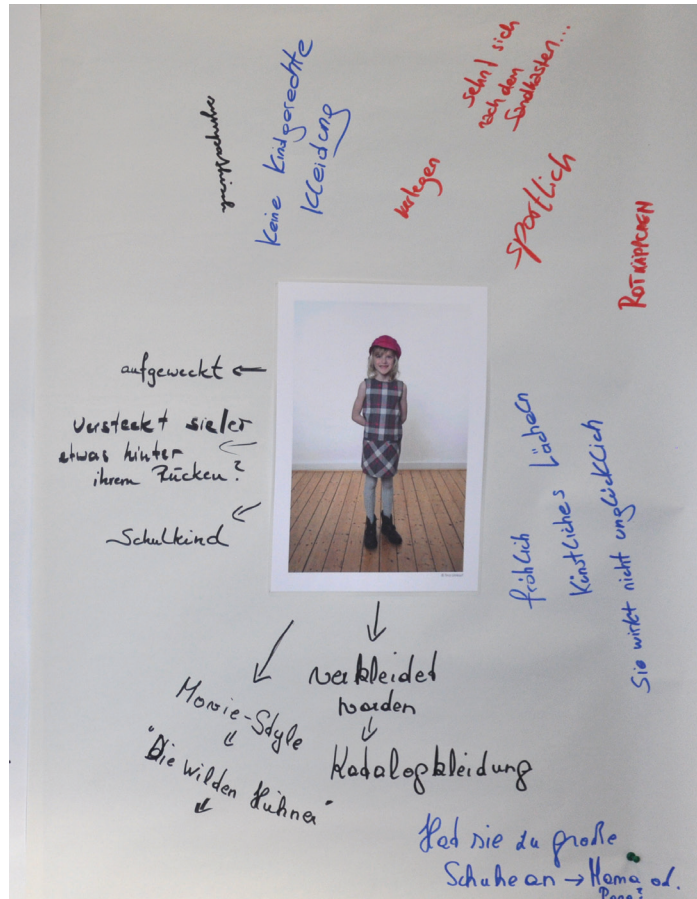 keine Kindgerechte
Kleidung
verlegen
sehnt sich
nach dem
Sandkasten...
sportlich
ROTKÄPPCHEN
aufgeweckt ←
versteckt sie/er
etwas hinter
ihrem Rücken?
Schulkind
fröhlich
Künstliches Lächeln
Sie wirkt nicht unglücklich
Movie-Style
"Die wilden Hühner"
verkleidet
worden
Katalogkleidung
Hat sie zu große
Schuhe an → Mama od.
Papa?